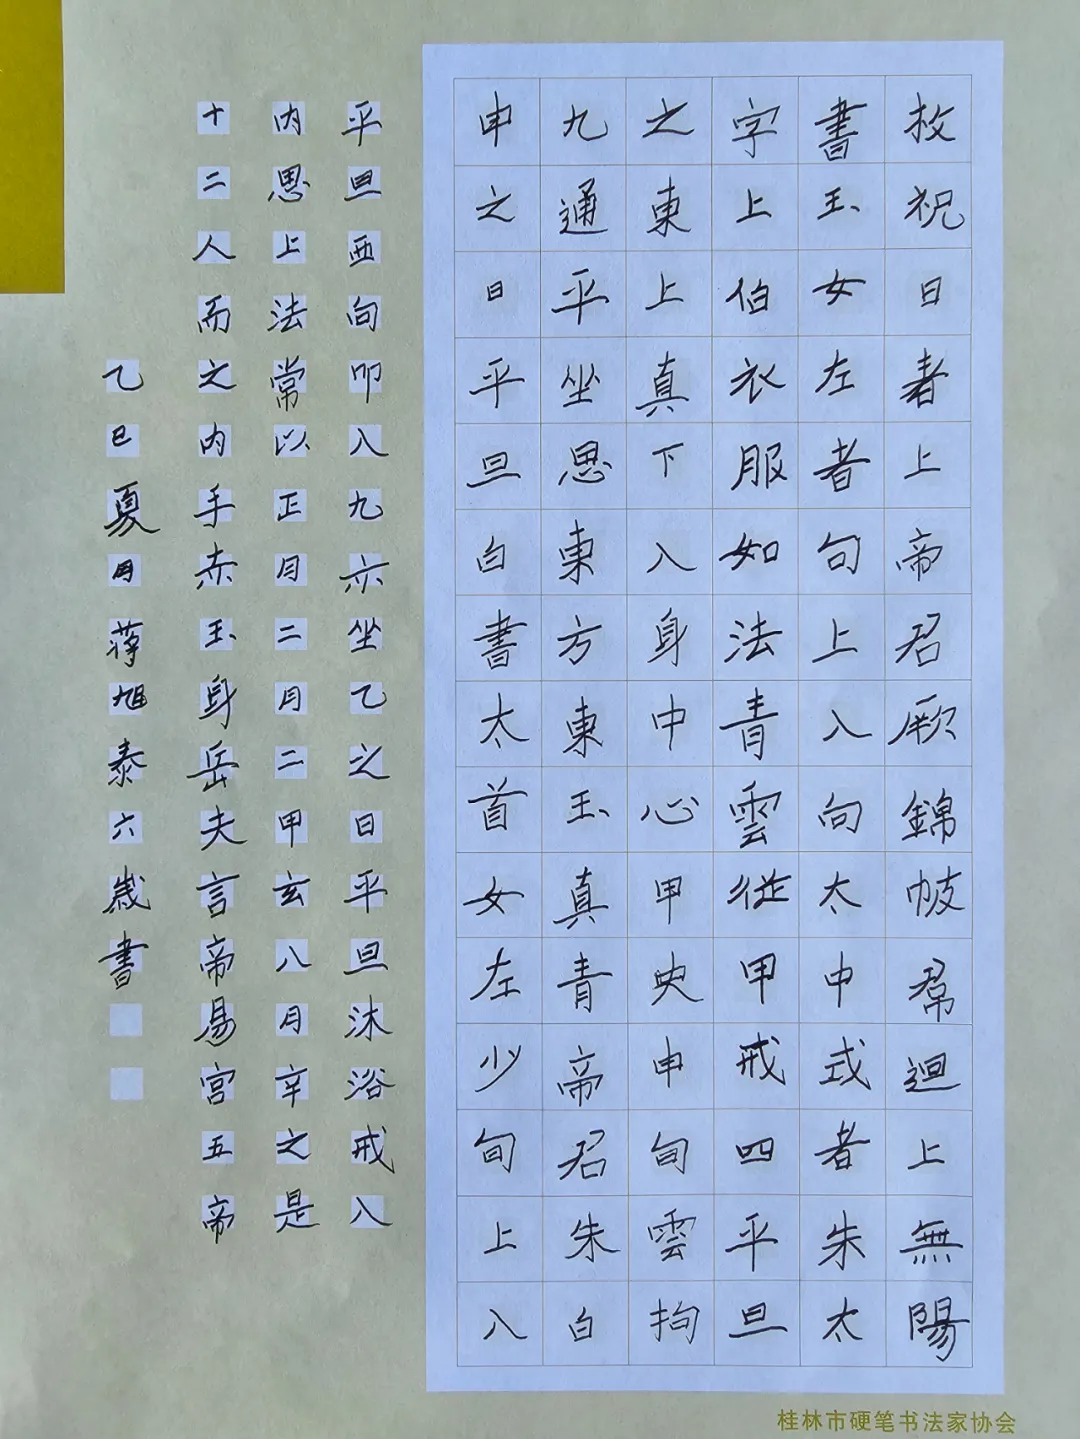 敉祝日者上帝君厥錦帔君帬迴上無陽
書玉女左者句上入向太中式者朱太
字上伯衣服如法青雲從甲戒四平旦
之東上真下入身中心甲央申旬雲拘
九通平坐思東方東玉真青帝君朱白
申之日平旦白書太首女左少旬上入
平旦西向叩入九亦坐乙之日平旦沐浴戒入
内思上法常以正月二月二甲玄八月辛之是
十二人而之内手赤玉身岳夫言帝易宫五帝
乙巳夏月蒋旭泰六歲書
桂林市硬笔书法家协会